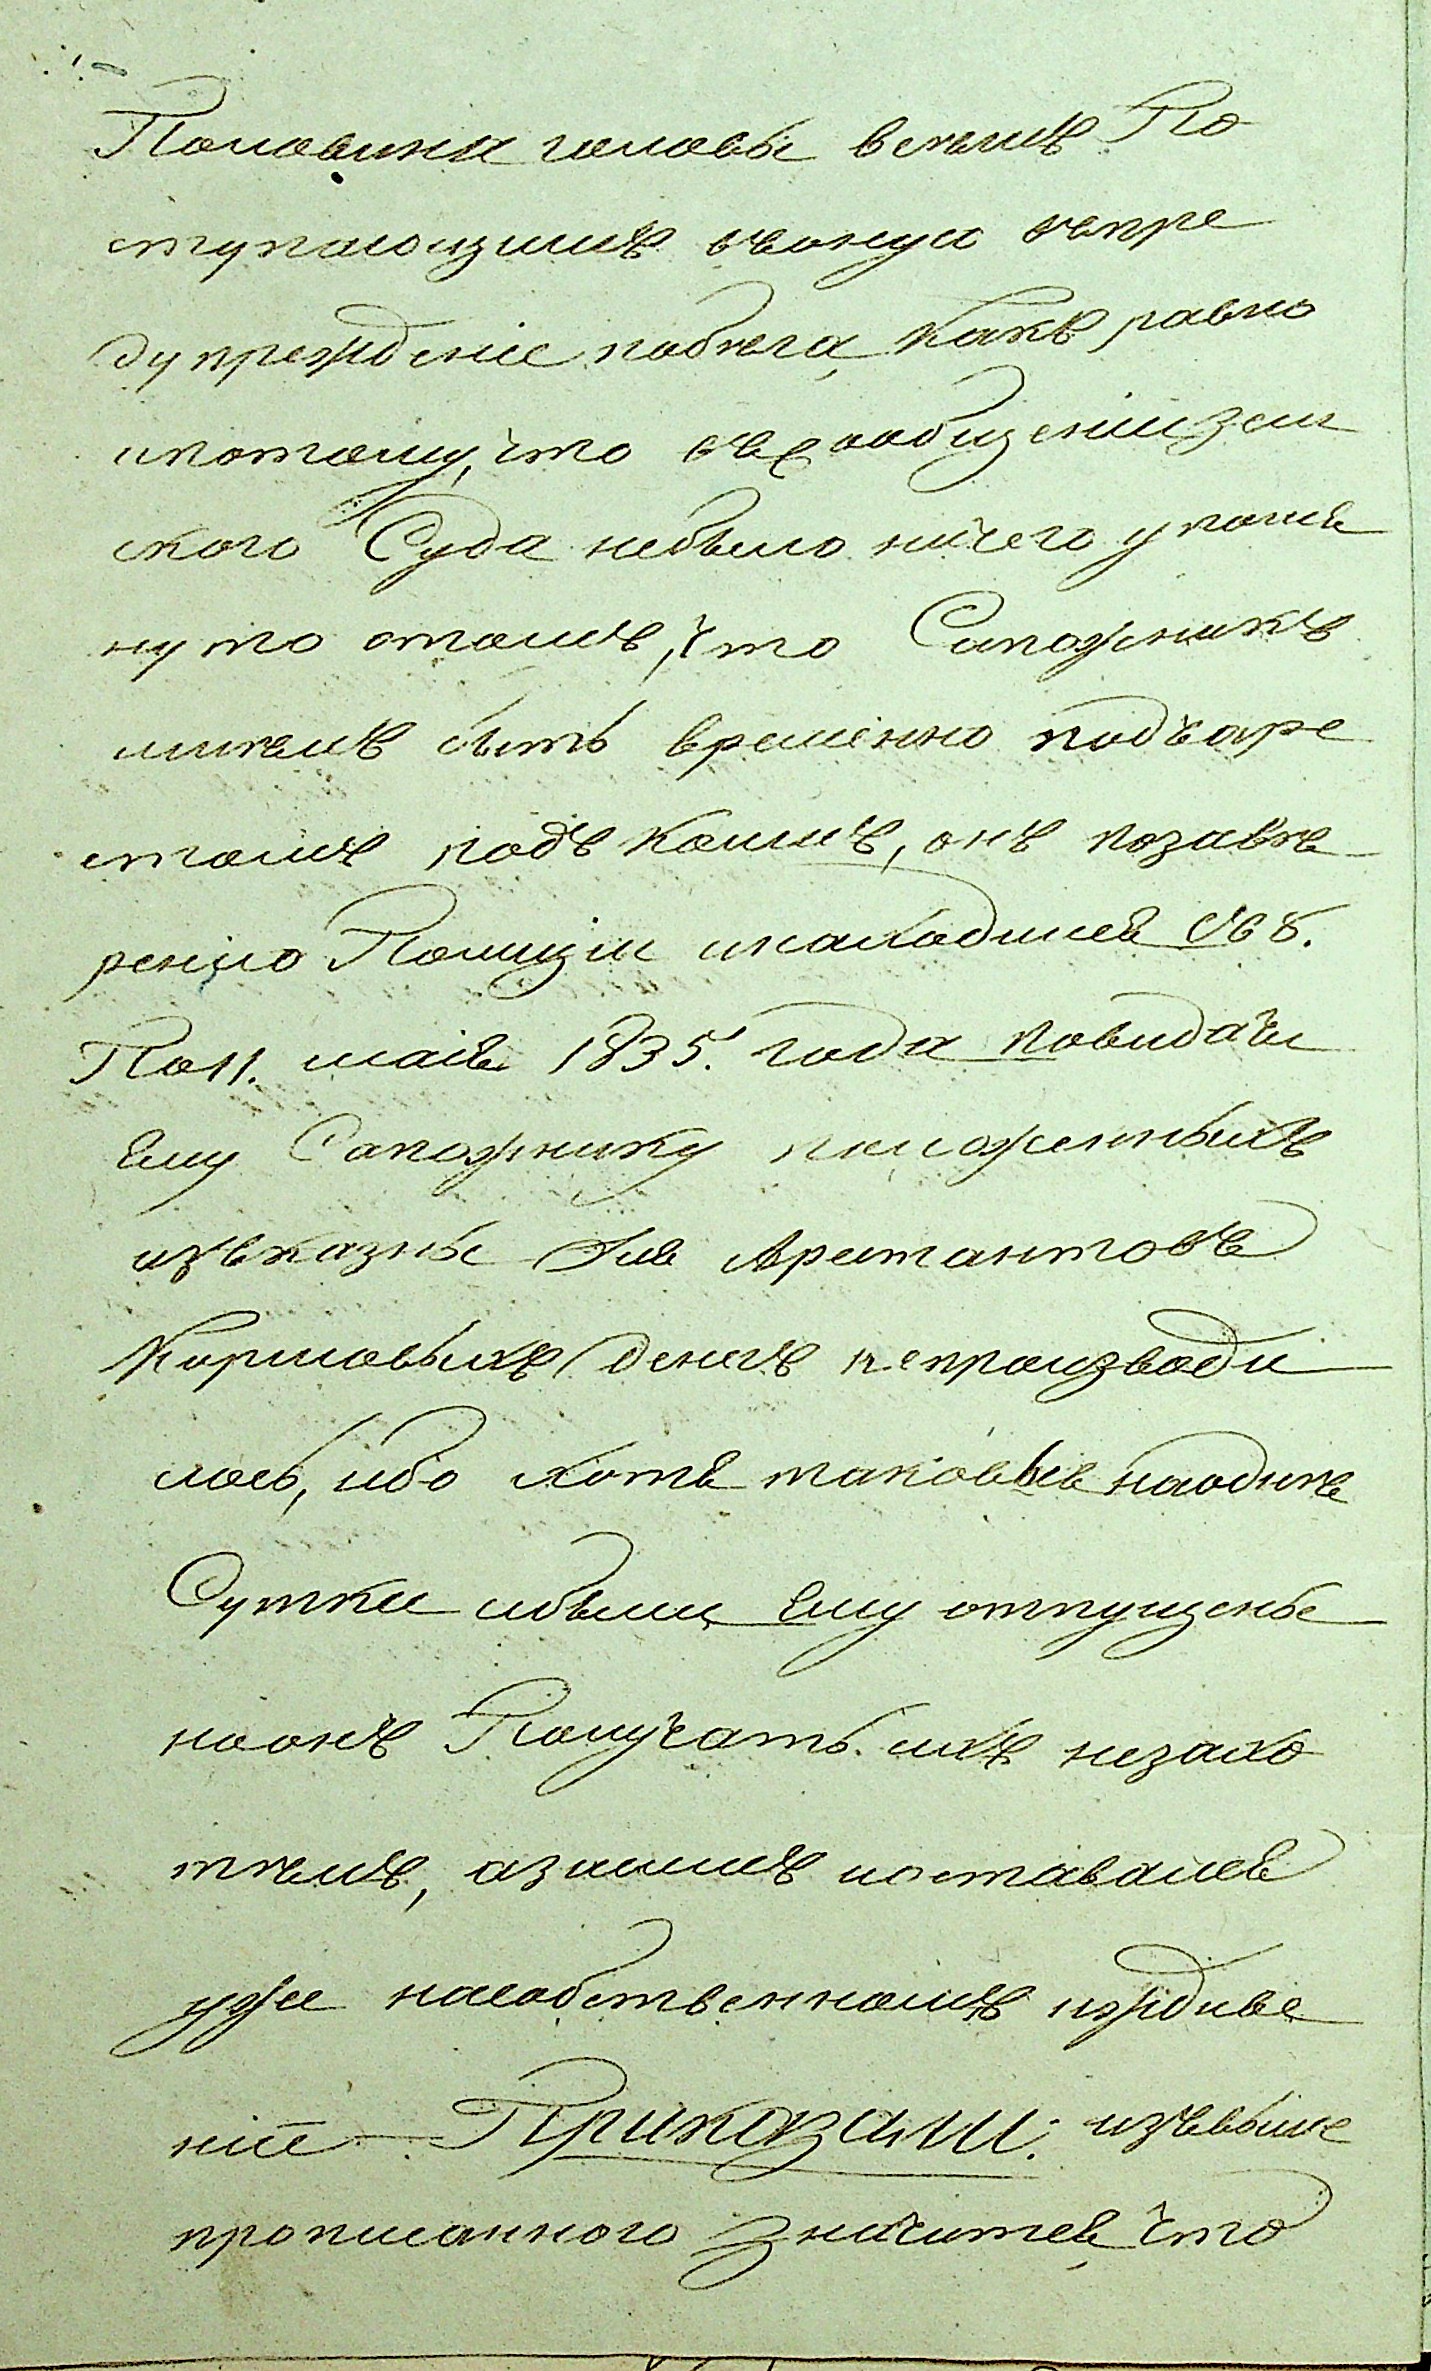 Половина головы всемъ По
ступающимъ въоную въпре
дупреждение побѣга, какъ равно
ипотому, что въсообщенииЗем
ского Суда небыло ничего упомя
нуто отомъ, что Сапожникъ
имѣлъ быть временно подъаре
стомъ подъ коимъ, онъ позавѣ
ренію Полиціи инаходился съ 8.
По 11. маія 1835. года повидачи
Ему Сапожнику положенныхъ
изъказны для Арестантовъ
Кормовыхъ денегъ непроизводи
лось, ибо хотя таковыя наоднѣ
Сутки ибыли Ему отпущены
ноонъ Получать ихъ незахо
тѣлъ, азаимъ иоставался
уже насобственномъ иждиве
ніе — Приказали: изъвыше
прописанного Значится, что